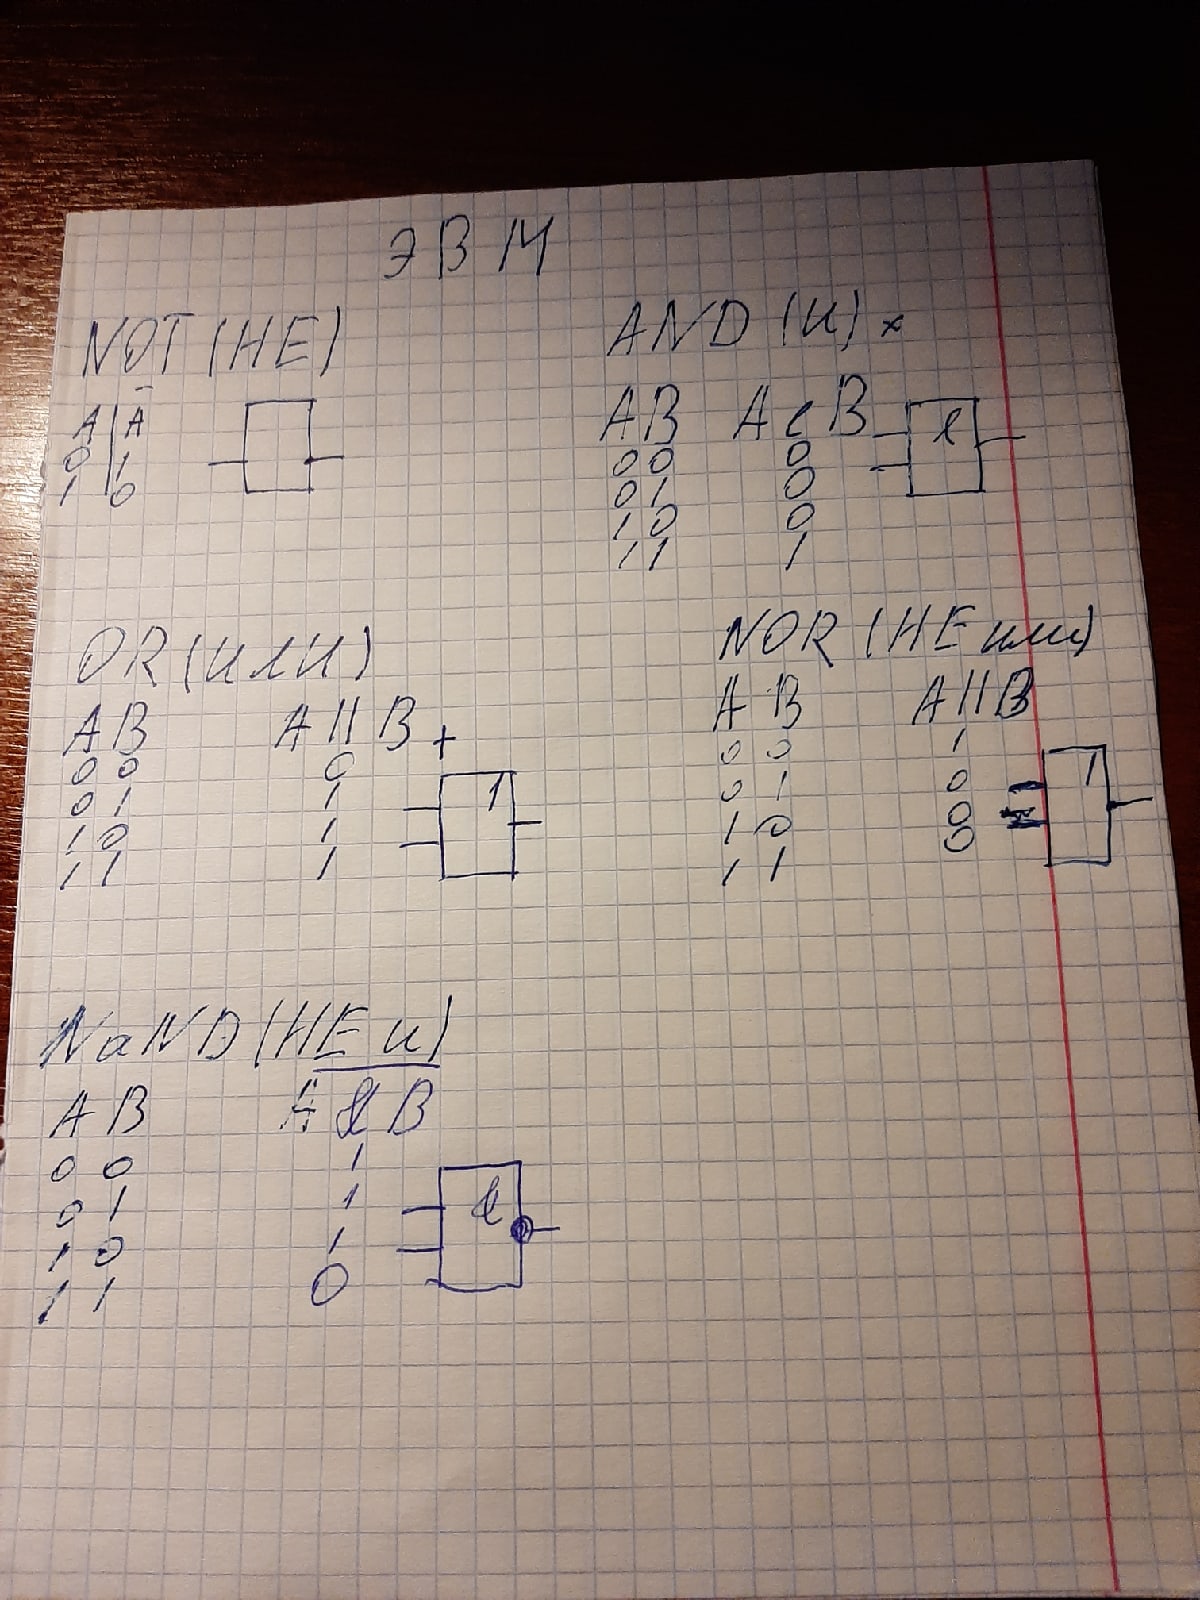 ЭВМ
NOT (НЕ)
A Ā
0 1
1 0
AND (и) ×
A B A & B
0 0 0
0 1 0
1 0 0
1 1 1
&
OR (или)
A B A || B +
0 0 0
0 1 1
1 0 1
1 1 1
1
NOR (НЕ или)
A B A || B
0 0 1
0 1 0
1 0 0
1 1 0
1
NaND (НЕ и)
A B A & B
0 0 1
0 1 1
1 0 1
1 1 0
&